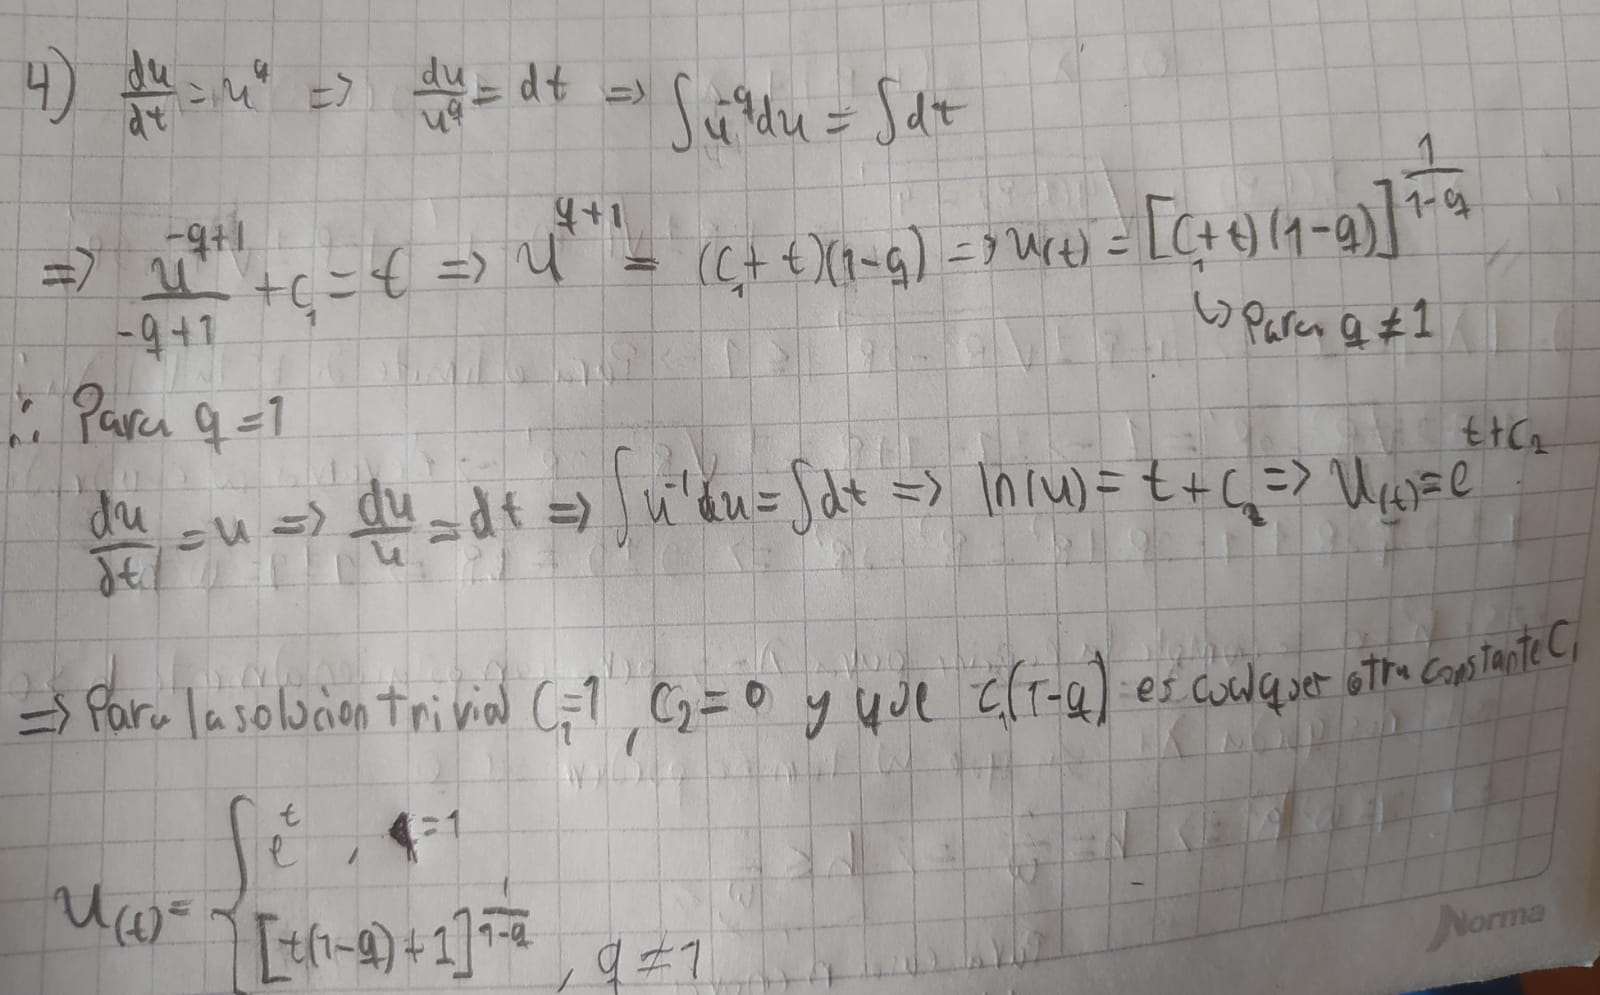 4) du/dt = u^q => du/u^q = dt => ∫u^-q du = ∫dt
=> u^(-q+1)/(-q+1) + C₁ = t => u^(q+1) = (C₁+t)(1-q) => u(t) = [C₁+t)(1-q)]^(1/(1-q))
↳ Para q ≠ 1
∴ Para q = 1
du/dt = u => du/u = dt => ∫u^-1 du = ∫dt => ln(u) = t + C₂ => u(t) = e^(t+C₂)
=> Para la solucion trivial C₁=1, C₂=0 y que C₁(1-q) es cualquer otra constante C₁
u(t) = { e^t, q=1
[t(1-q)+1]^(1/(1-q)), q ≠ 1
Norma